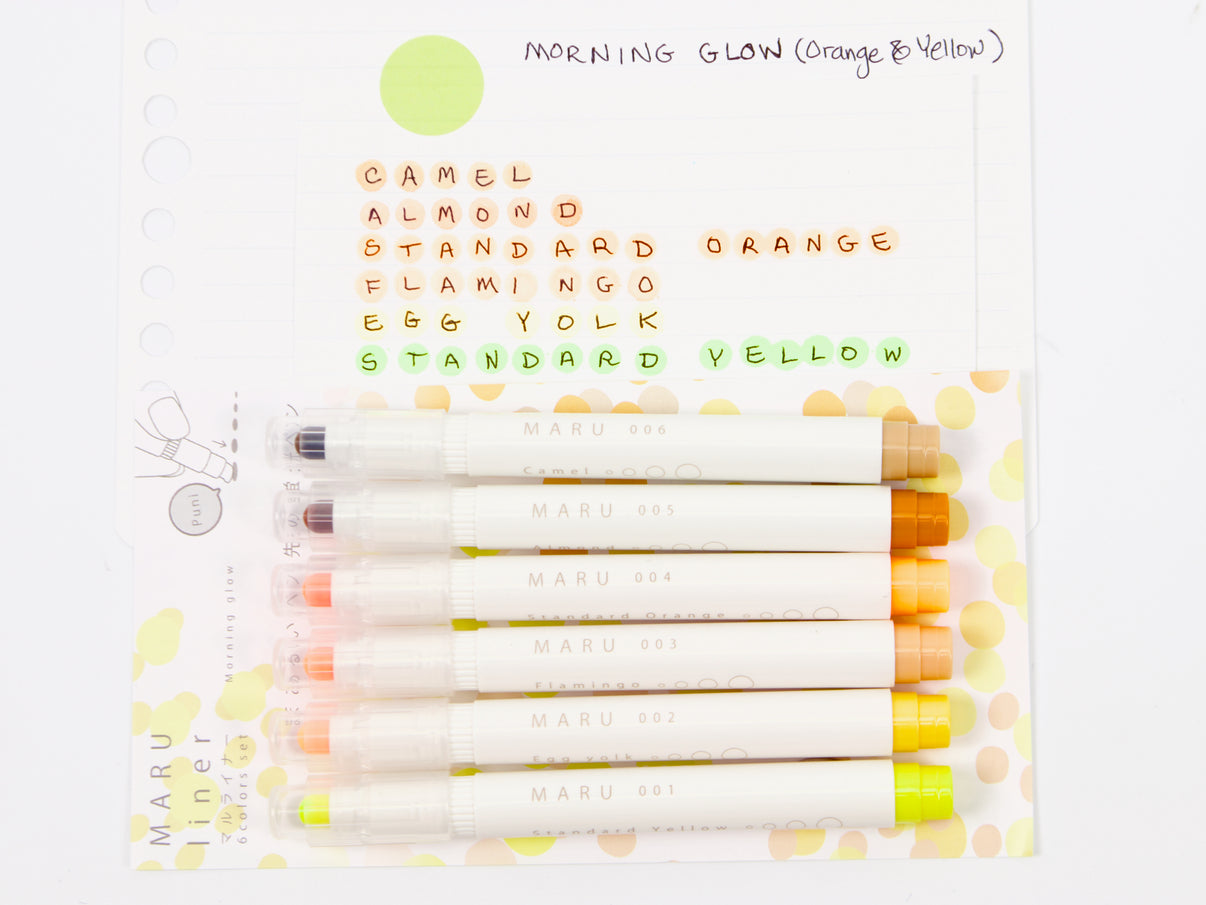 MORNING GLOW (Orange & Yellow)
CAMEL
ALMOND
STANDARD ORANGE
FLAMINGO
EGG YOLK
STANDARD YELLOW
MARU 006
Camel
MARU 005
Almond
MARU 004
Standard Orange
MARU 003
Flamingo
MARU 002
Egg yolk
MARU 001
Standard Yellow
puni
Morning glow
MARU
liner
マルライナー
6colors set